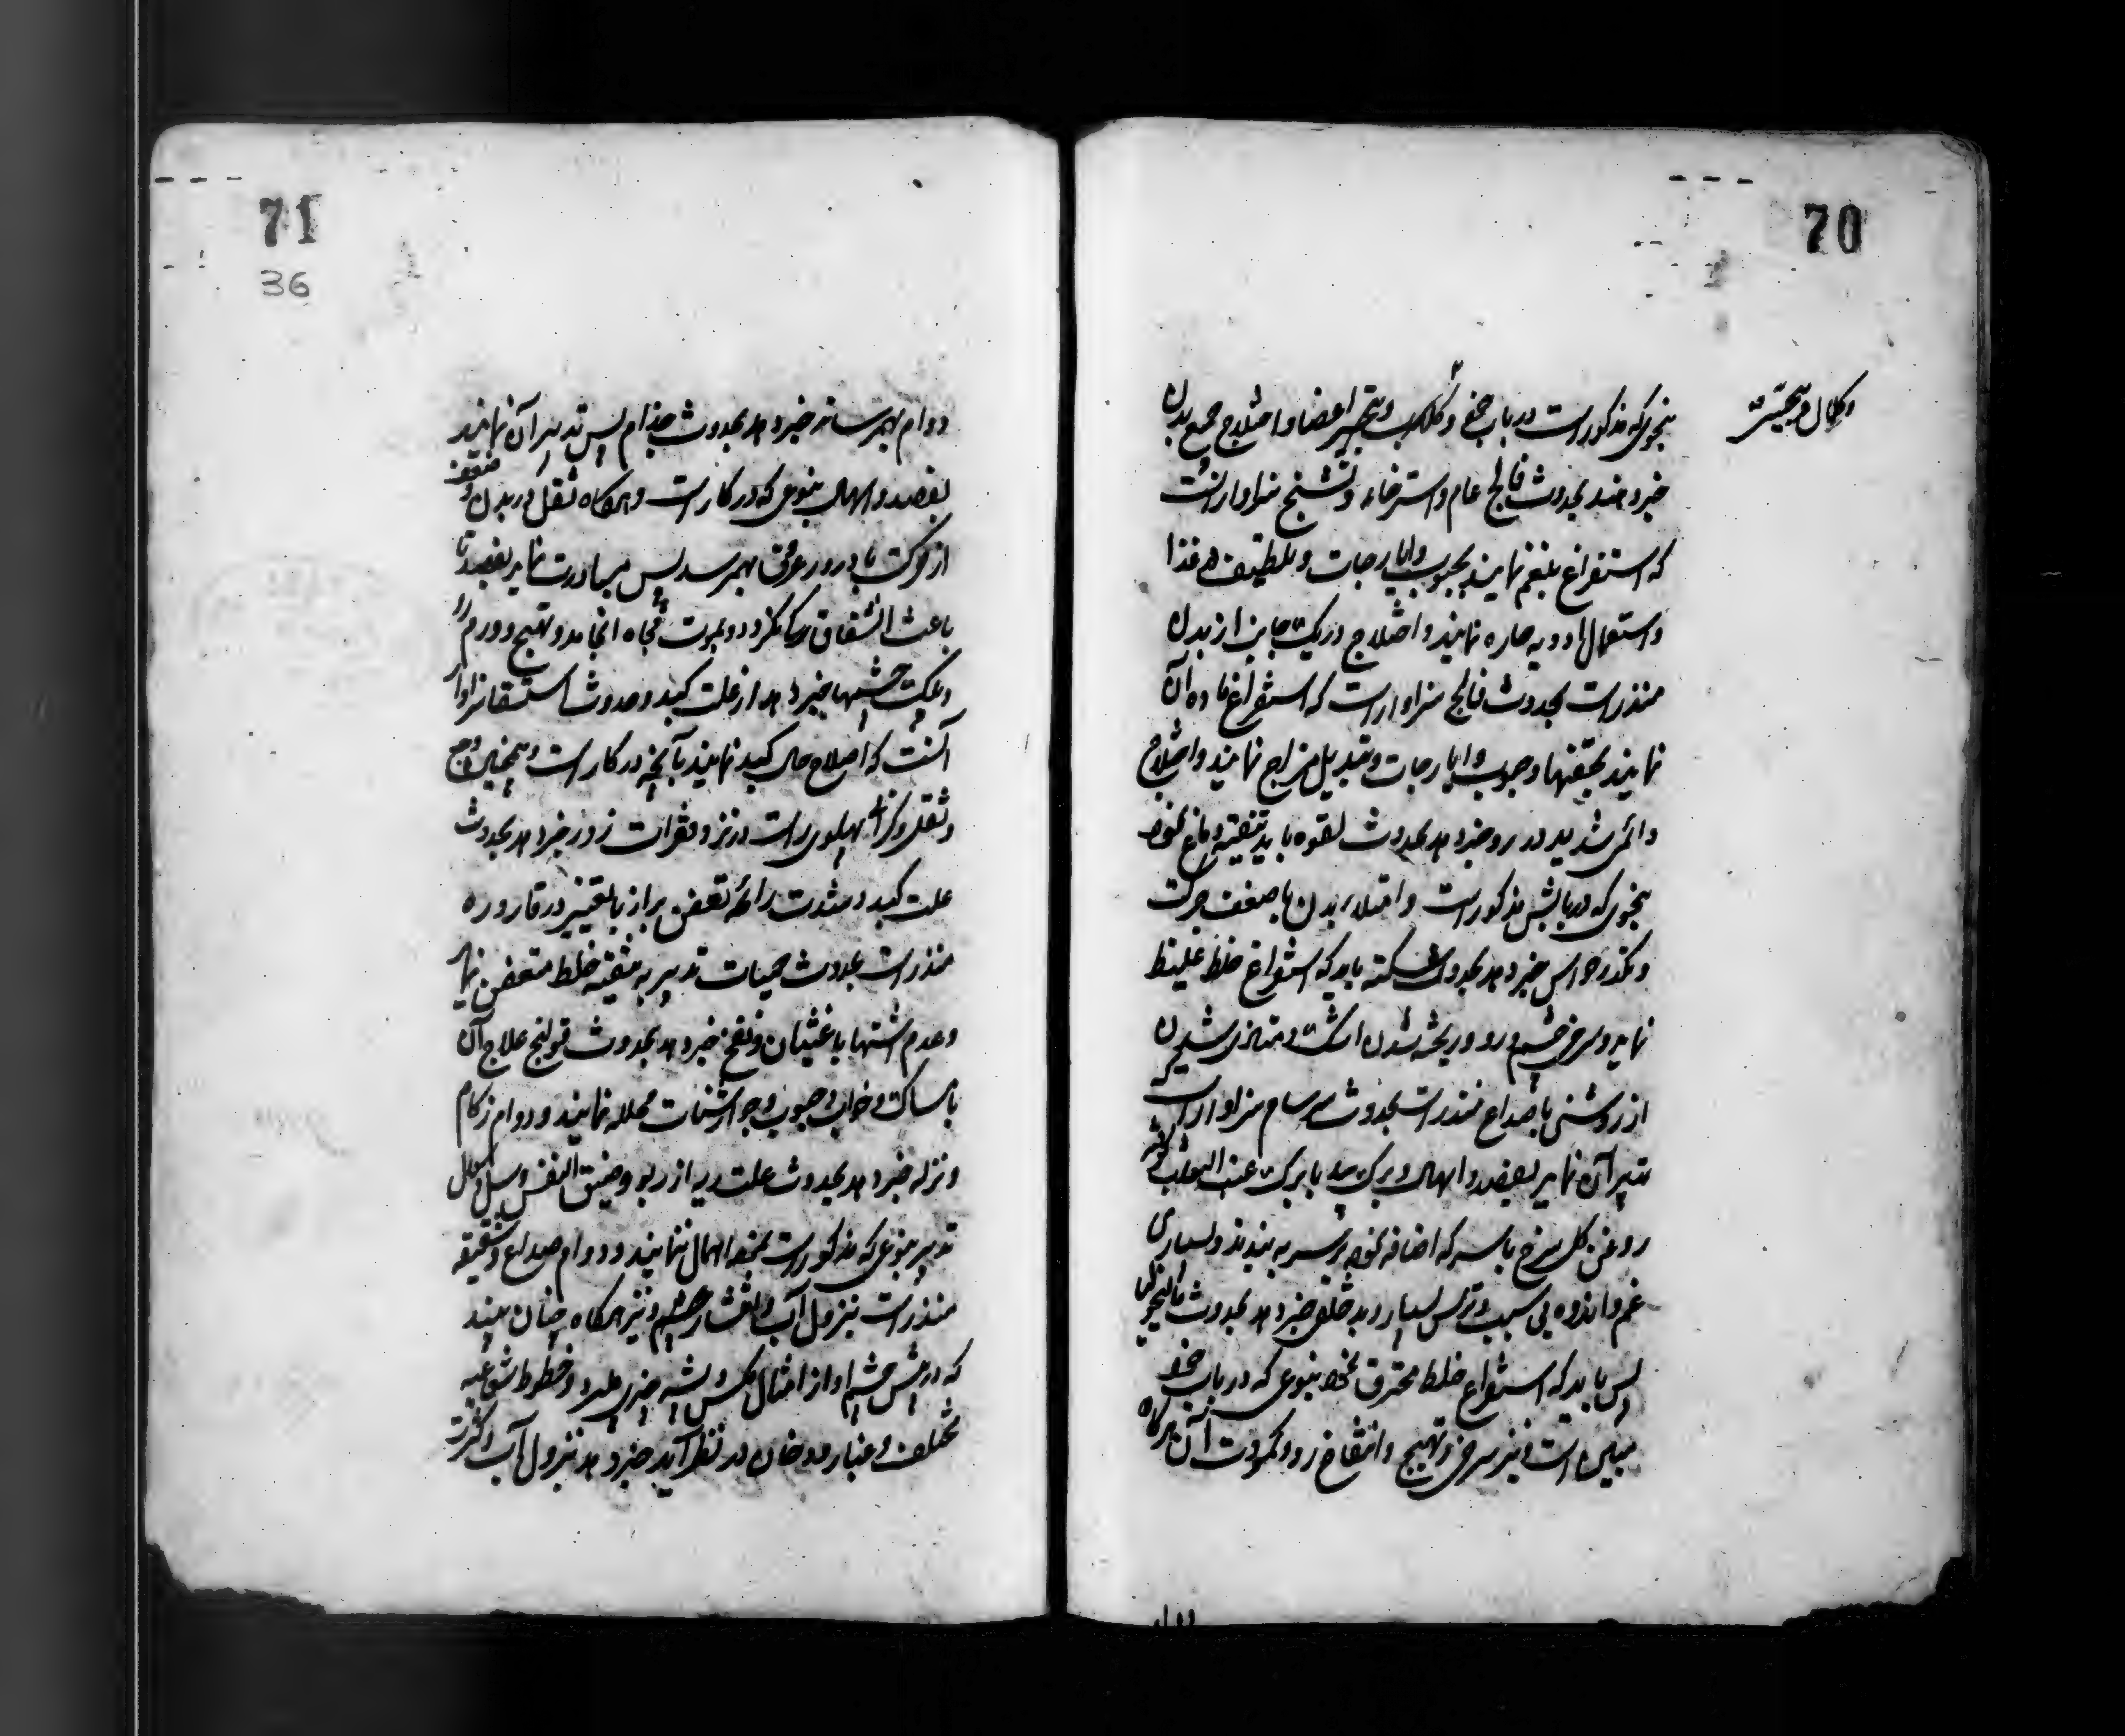 70
بنحوی که مذکور است در باب خود و تخدیر اعضا و اختلاج جمیع بدن
خبر دهند بحدوث فالج عام و استرخاء و تشنج سزاوار انست
که استفراغ بلغم نمایند بحبوب و ایارجات و بلطیف غذا
و استعمال ادویه حاره نمایند و اختلاج در یک جانب از بدن
منذر است بحدوث فالج سزاوار است که استفراغ ماده آن
نمایند بحقنها و حبوب و ایارجات و تبدیل مزاج نمایند و اختلاج
دائمی شدید در رو خبر دهد بحدوث لقوه باید تنقیه دماغ نمود
بنحوی که در بابش مذکور است و امتلاء بدن با ضعف حرکت
و تکدر حواس خبر دهد بحدوث سکته باید که استفراغ خلط غلیظ
نماید و سرخی چشم و رو و ریخته شدن اشک و متاذی شدن
از روشنی با صداع منذر است بحدوث سرسام سزاوار است که
تدبیر آن نمایند بفصد و اسهال و برک بید با برک عنب الثعلب
روغن کل سرخ با سرکه اضافه نموده بر سر به بندند و بسیاری
غم و اندوه بی سبب و ترس بسیار و بد خلقی خبر دهد بحدوث مالیخولیا
پس باید که استفراغ خلط محترق نمود بنوعی که در باب خود
مبین است و نیز سرخی و تهیج و انتفاخ رو و کمودت آن هرکاه
71
36
دوام بهم رساند خبر دهد بحدوث جذام پس تدبیر آن نمایند
بفصد و اسهال بنوعی که در کار است و هرکاه ثقل در بدن و ضعف
از حرکت با درور عرق بهم رسد پس مبادرت نماید بفصد تا
باعث انشقاق رک نکردد و بموت فجاه انجامد و تهیج و ورم رو
و پلک چشمها خبر دهد از علت کبد و حدوث استسقا سزاوار
آنست که اصلاح حال کبد نمایند بآنچه در کار است و همچنین وجع
و ثقل و کرانی پهلوی راست در نزد فقرات زور خبر دهد بحدوث
علت کبد و شدت رائحه تعفن براز با تغییر در قاروره
منذر است بحدوث حمیات تدبیر به تنقیه خلط متعفن نماید
و عدم اشتها با غثیان و نفخ خبر دهد بحدوث قولنج علاج آن
بامساک و خواب و حبوب و جوارشنات محلله نمایند و دوام زکام
و نزله خبر دهد بحدوث علت ریه از ربو و ضیق النفس و سل و سعال
تدبیر بنوعی که مذکور است بخود اهمال ننمایند و دوام صداع و شقیقه
منذر است بنزول آب و انتشار چشم و نیز هرکاه چنان بیند
که در پیش چشم او از امثال مکس و پشه چیزی میپرد و خطوط شعاعیه
مختلف و غبار و دخان در نظر آید خبر دهد بنزول آب و کثرت